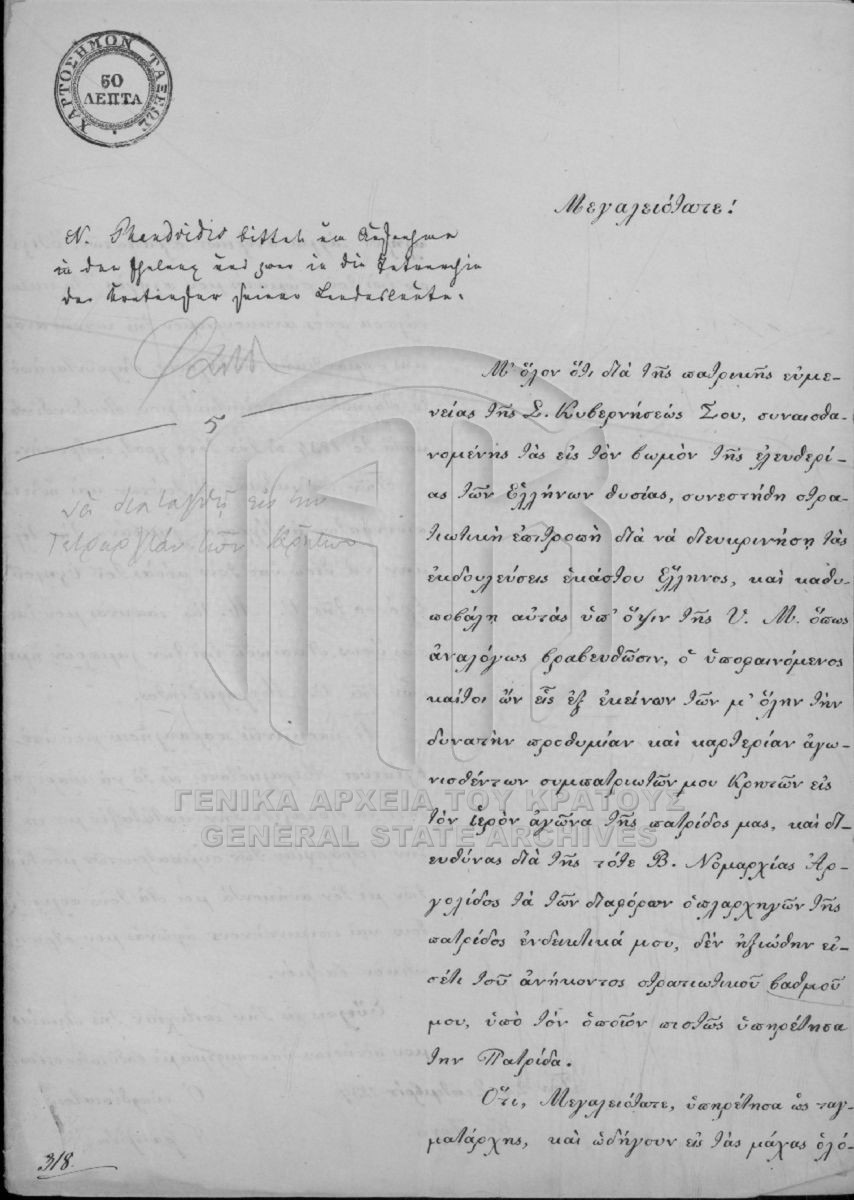 ΧΑΡΤΟΣΗΜΟΝ ΤΑΞΕΩΣ
50
ΛΕΠΤΑ
Μεγαλειότατε!
N. bittet um Aufnahme
in den Phalanx und zwar in die Tetrarchie
der Kretenser seiner Landesleute.
5
νὰ διαταχθῇ εἰς τὴν
Τετραρχίαν τῶν Κρητῶν
Μ' ὅλον ὅτι διὰ τῆς πατρικῆς εὐμε-
νείας τῆς Σ. Κυβερνήσεώς Σου, συναισθα-
νομένης τὰς εἰς τὸν βωμὸν τῆς ἐλευθερί-
ας τῶν Ἑλλήνων θυσίας, συνεστήθη στρα-
τιωτικὴ ἐπιτροπὴ διὰ νὰ διευκρινήσῃ τὰς
ἐκδουλεύσεις ἑκάστου Ἕλληνος, καὶ καθυ-
ποβάλῃ αὐτὰς ὑπ' ὄψιν τῆς Υ. Μ. ὅπως
ἀναλόγως βραβευθῶσιν, ὁ ὑποφαινόμενος
καίτοι ὢν εἷς ἐξ ἐκείνων τῶν μ' ὅλην τὴν
δυνατὴν προθυμίαν καὶ καρτερίαν ἀγω-
νισθέντων συμπατριωτῶν μου Κρητῶν εἰς
τὸν ἱερὸν ἀγῶνα τῆς πατρίδος μας, καὶ δι-
ευθύνας διὰ τῆς τότε Β. Νομαρχίας Ἀρ-
γολίδος τὰ τῶν διαφόρων ὁπλαρχηγῶν τῆς
πατρίδος ἐνδεικτικά μου, δὲν ἠξιώθην εἰ-
σέτι τοῦ ἀνήκοντος στρατιωτικοῦ βαθμοῦ
μου, ὑπὸ τὸν ὁποῖον πιστῶς ὑπηρέτησα
τὴν Πατρίδα.
Ὅτι, Μεγαλειότατε, ὑπηρέτησα ὡς ταγ-
ματάρχης, καὶ ὡδήγουν εἰς τὰς μάχας ὁλό-
318
ΓΕΝΙΚΑ ΑΡΧΕΙΑ ΤΟΥ ΚΡΑΤΟΥΣ
GENERAL STATE ARCHIVES